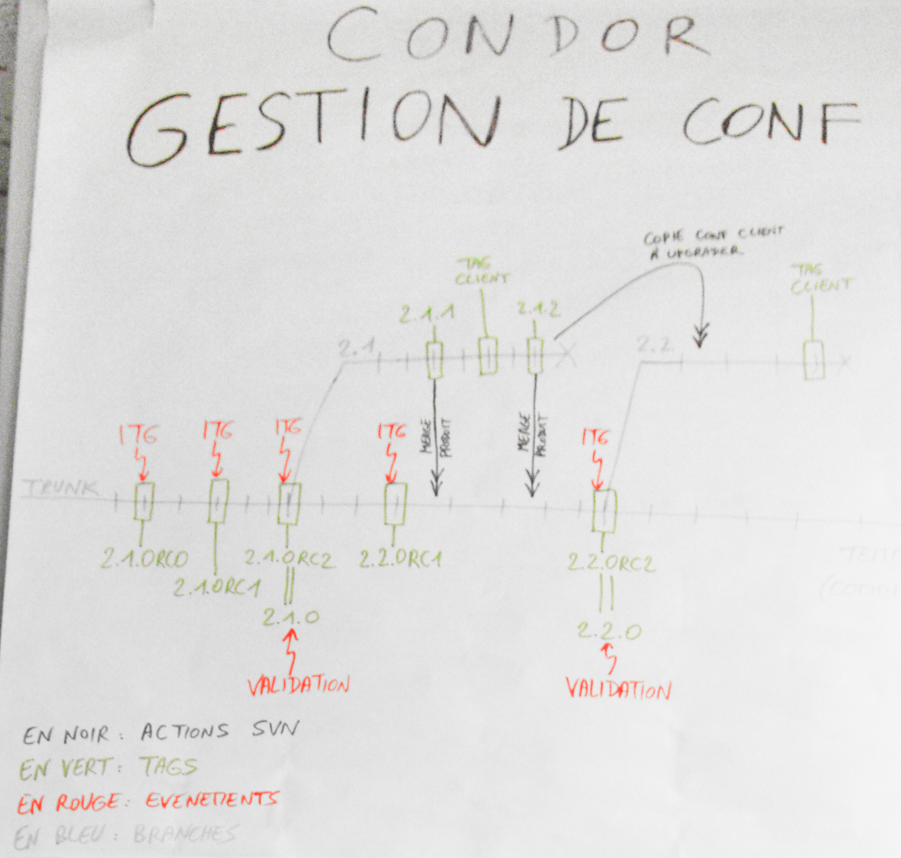 CONDOR
GESTION DE CONF
COPIE CONF CLIENT
À UPGRADER
TAG
CLIENT
TAG
CLIENT
2.1.1
2.1.2
2.1
2.2
ITG
ITG
ITG
ITG
MERGE
PRODUIT
MERGE
PRODUIT
ITG
TRUNK
2.1.0RC0
2.1.0RC1
2.1.0RC2
2.2.0RC1
2.2.0RC2
2.1.0
2.2.0
VALIDATION
VALIDATION
EN NOIR : ACTIONS SVN
EN VERT : TAGS
EN ROUGE : EVENEMENTS
EN BLEU : BRANCHES